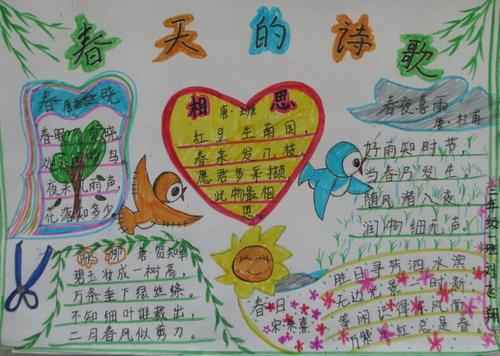 春天的诗歌
春晓
夜来风雨声
花落知多少
相思
唐·王维
红豆生南国，
春来发几枝，
愿君多采撷
此物最相
思
春夜喜雨
唐·杜甫
好雨知时节，
当春乃发生，
随风潜入夜
润物细无声
咏柳 贺知章
碧玉妆成一树高，
万条垂下绿丝绦，
不知细叶谁裁出
二月春风似剪刀。
春日
宋·朱熹
胜日寻芳泗水滨
无边光景一时新
等闲识得东风面
万紫千红总是春